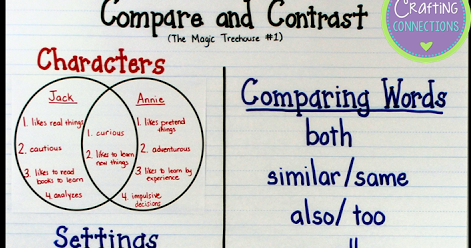 Compare and Contrast
(The Magic Treehouse #1)
Crafting
CONNECTIONS
Characters
Jack
1. likes real things
2. cautious
3. likes to read
books to learn
4. analyzes
1. curious
2. likes to learn
new things
Annie
1. likes pretend
things
2. adventurous
3. likes to learn by
experience
4. impulsive
decisions
Settings
Comparing Words
both
similar/same
also/too